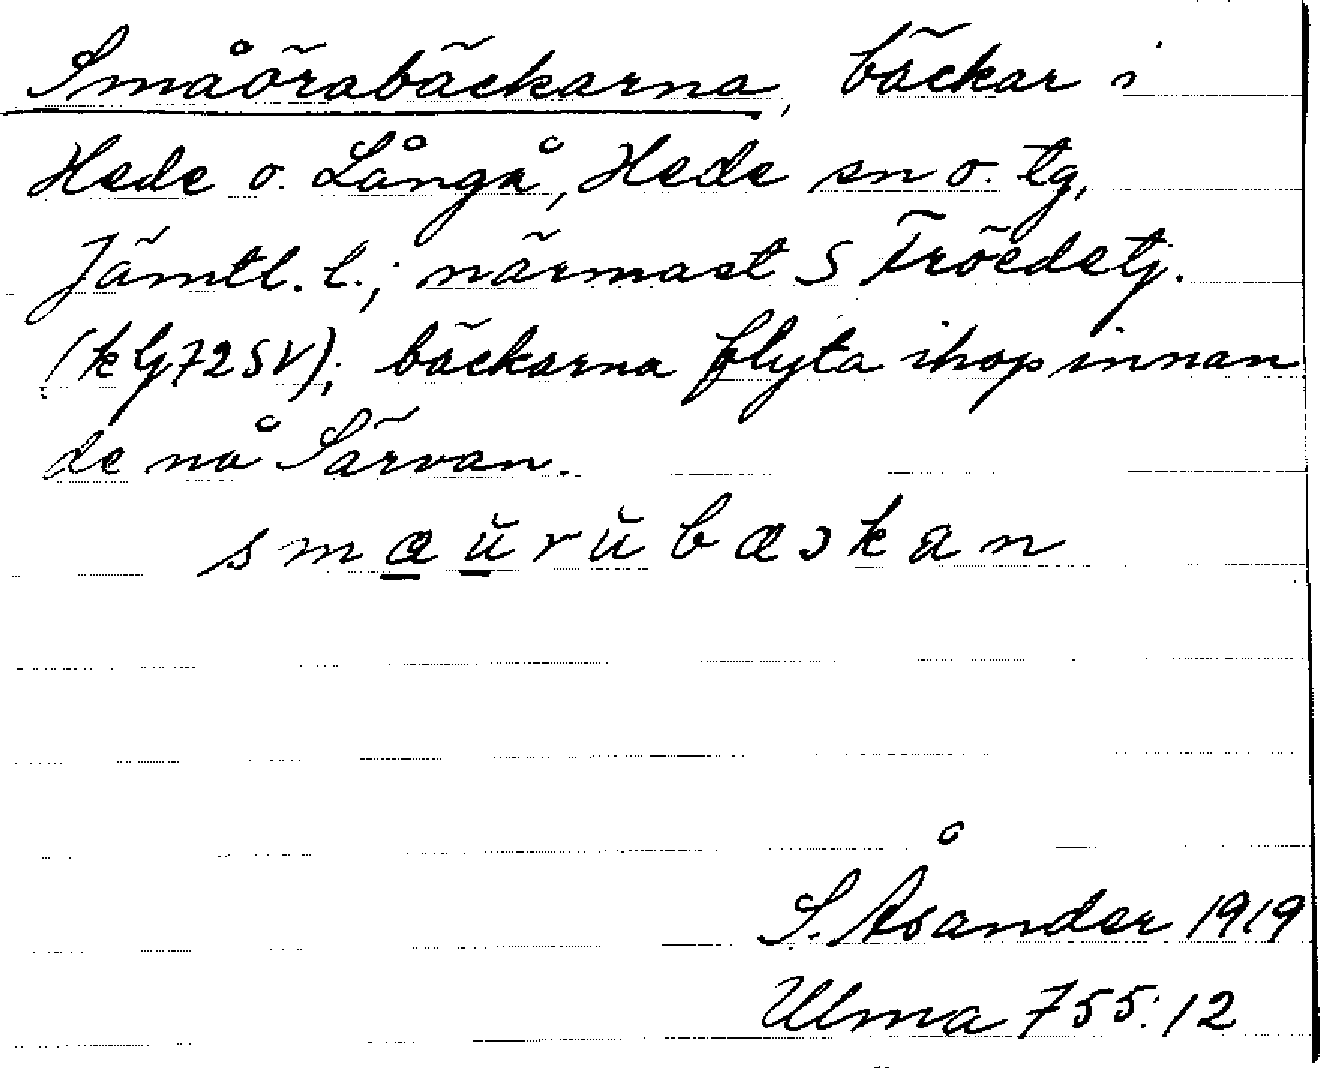 Småörabäckarna, bäckar i
Hede o. Långå, Hede sn o. tg,
Jämtl. l.; närmast S Tröedetj.
(kG72SV); bäckarna flyta ihop innan
de nå Särvan.
smæŭrŭbæɔkan
S. Åsander 1919
Ulma 755:12